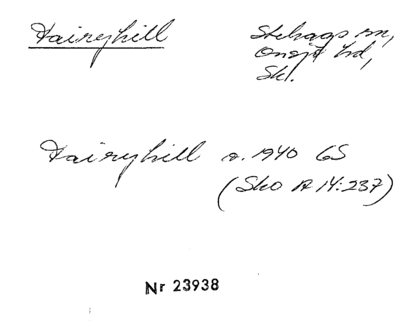 Daireyhill
Stehags sn,
Onsjö hd,
Sk.
Daireyhill s. 1940 GS
(SkO A 14:237)
Nr 23938